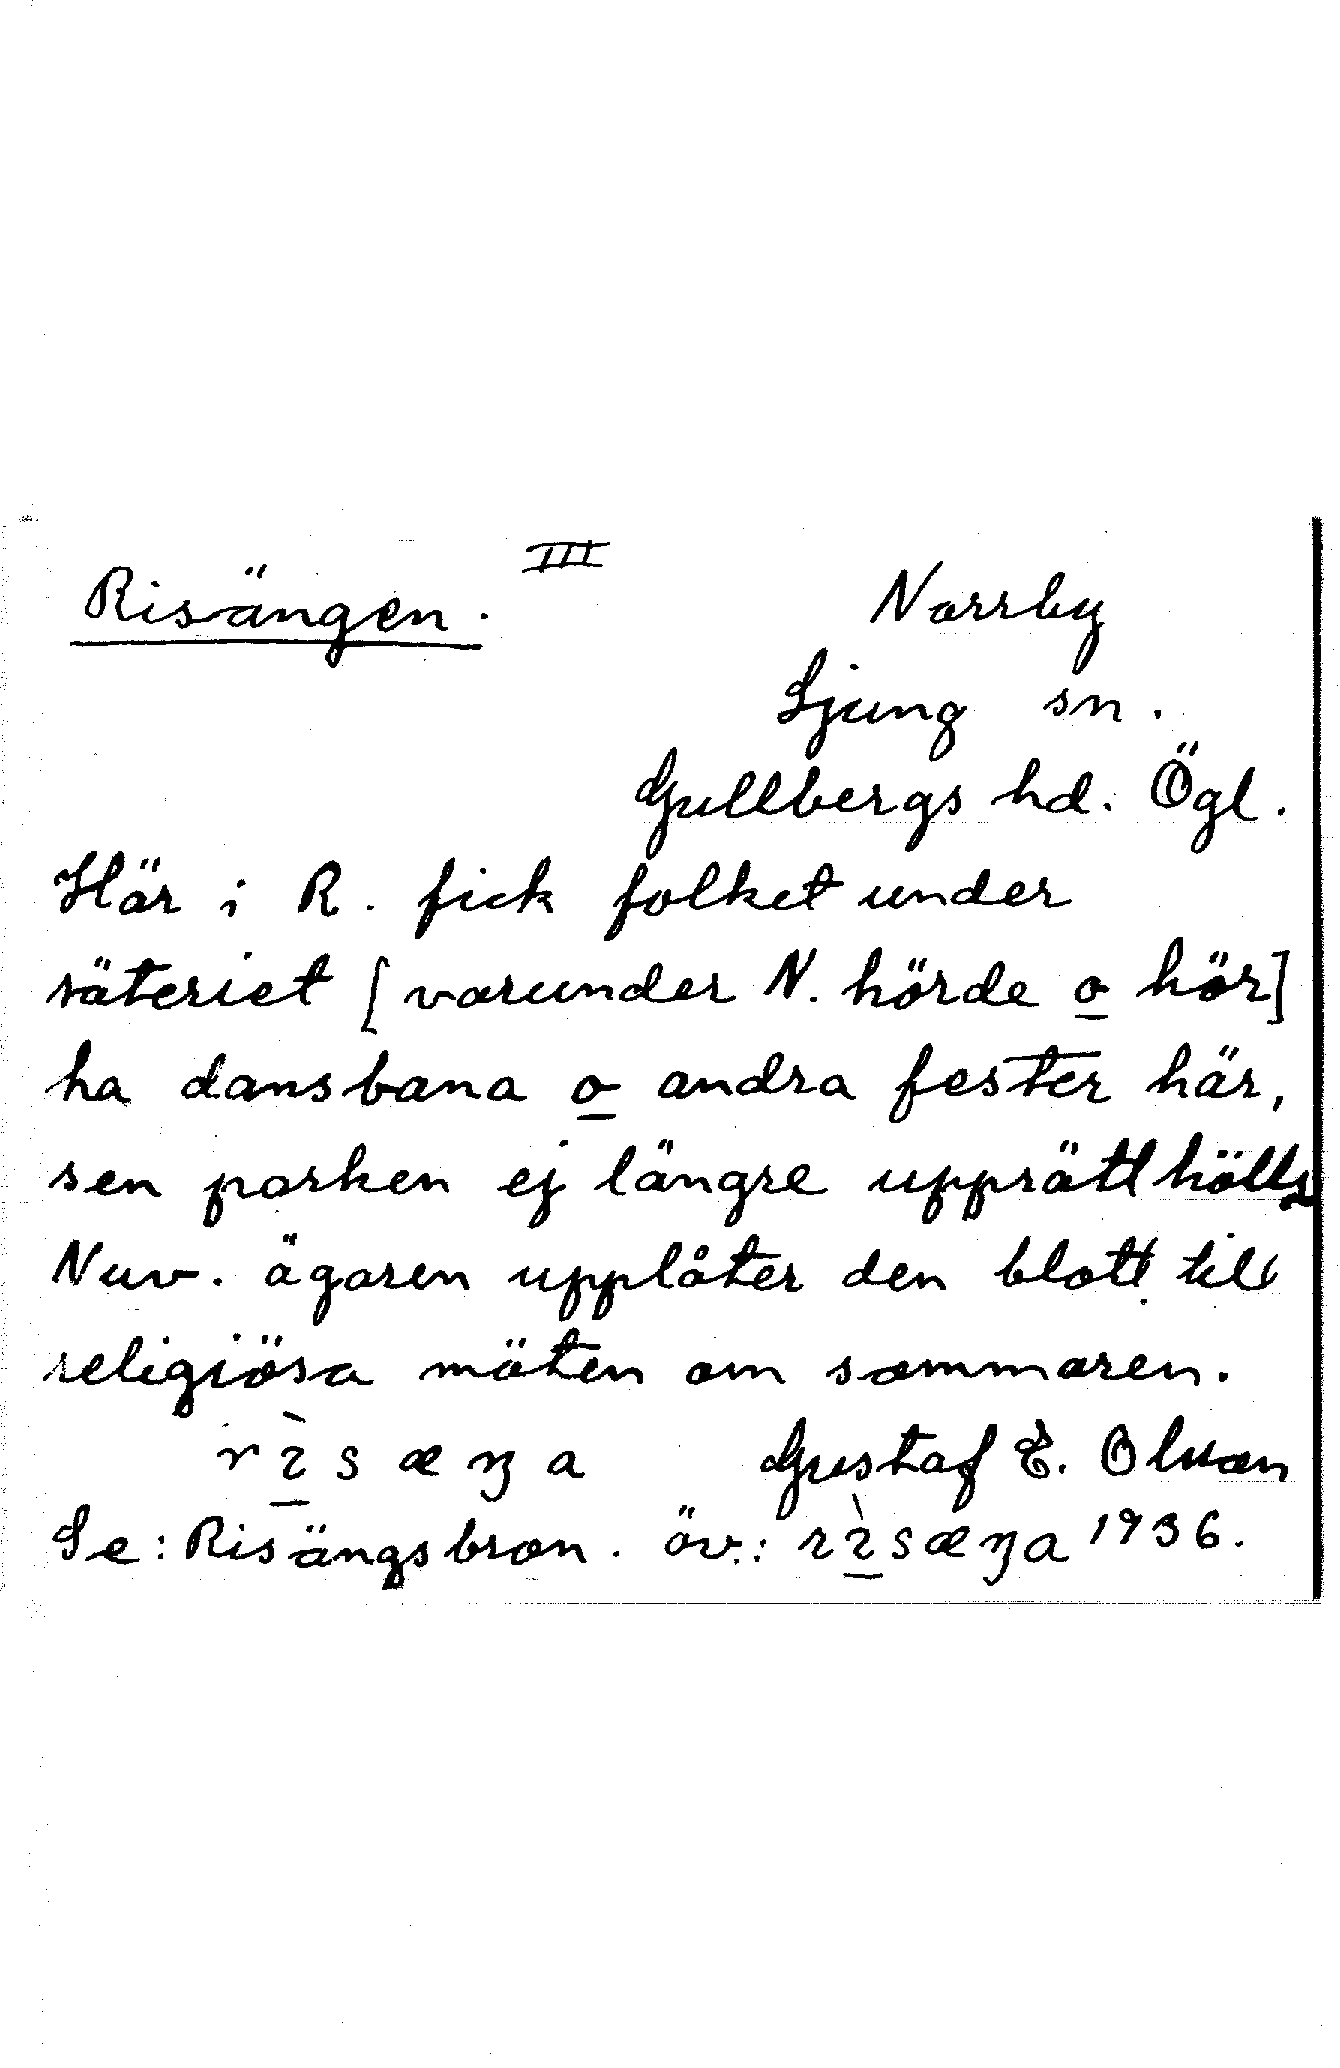 Risängen. III Norrby
Ljung sn.
Gullbergs hd. Ögl.
Här i R. fick folket under
säteriet [varunder N. hörde o hör]
ha dansbana o andra fester här,
sen parken ej längre upprätthölls
Nuv. ägaren upplåter den blott till
religiösa möten om sommaren.
rìsæŋa Gustaf E. Olsson
Se: Risängsbron. öv.: rìsæŋa 1936.